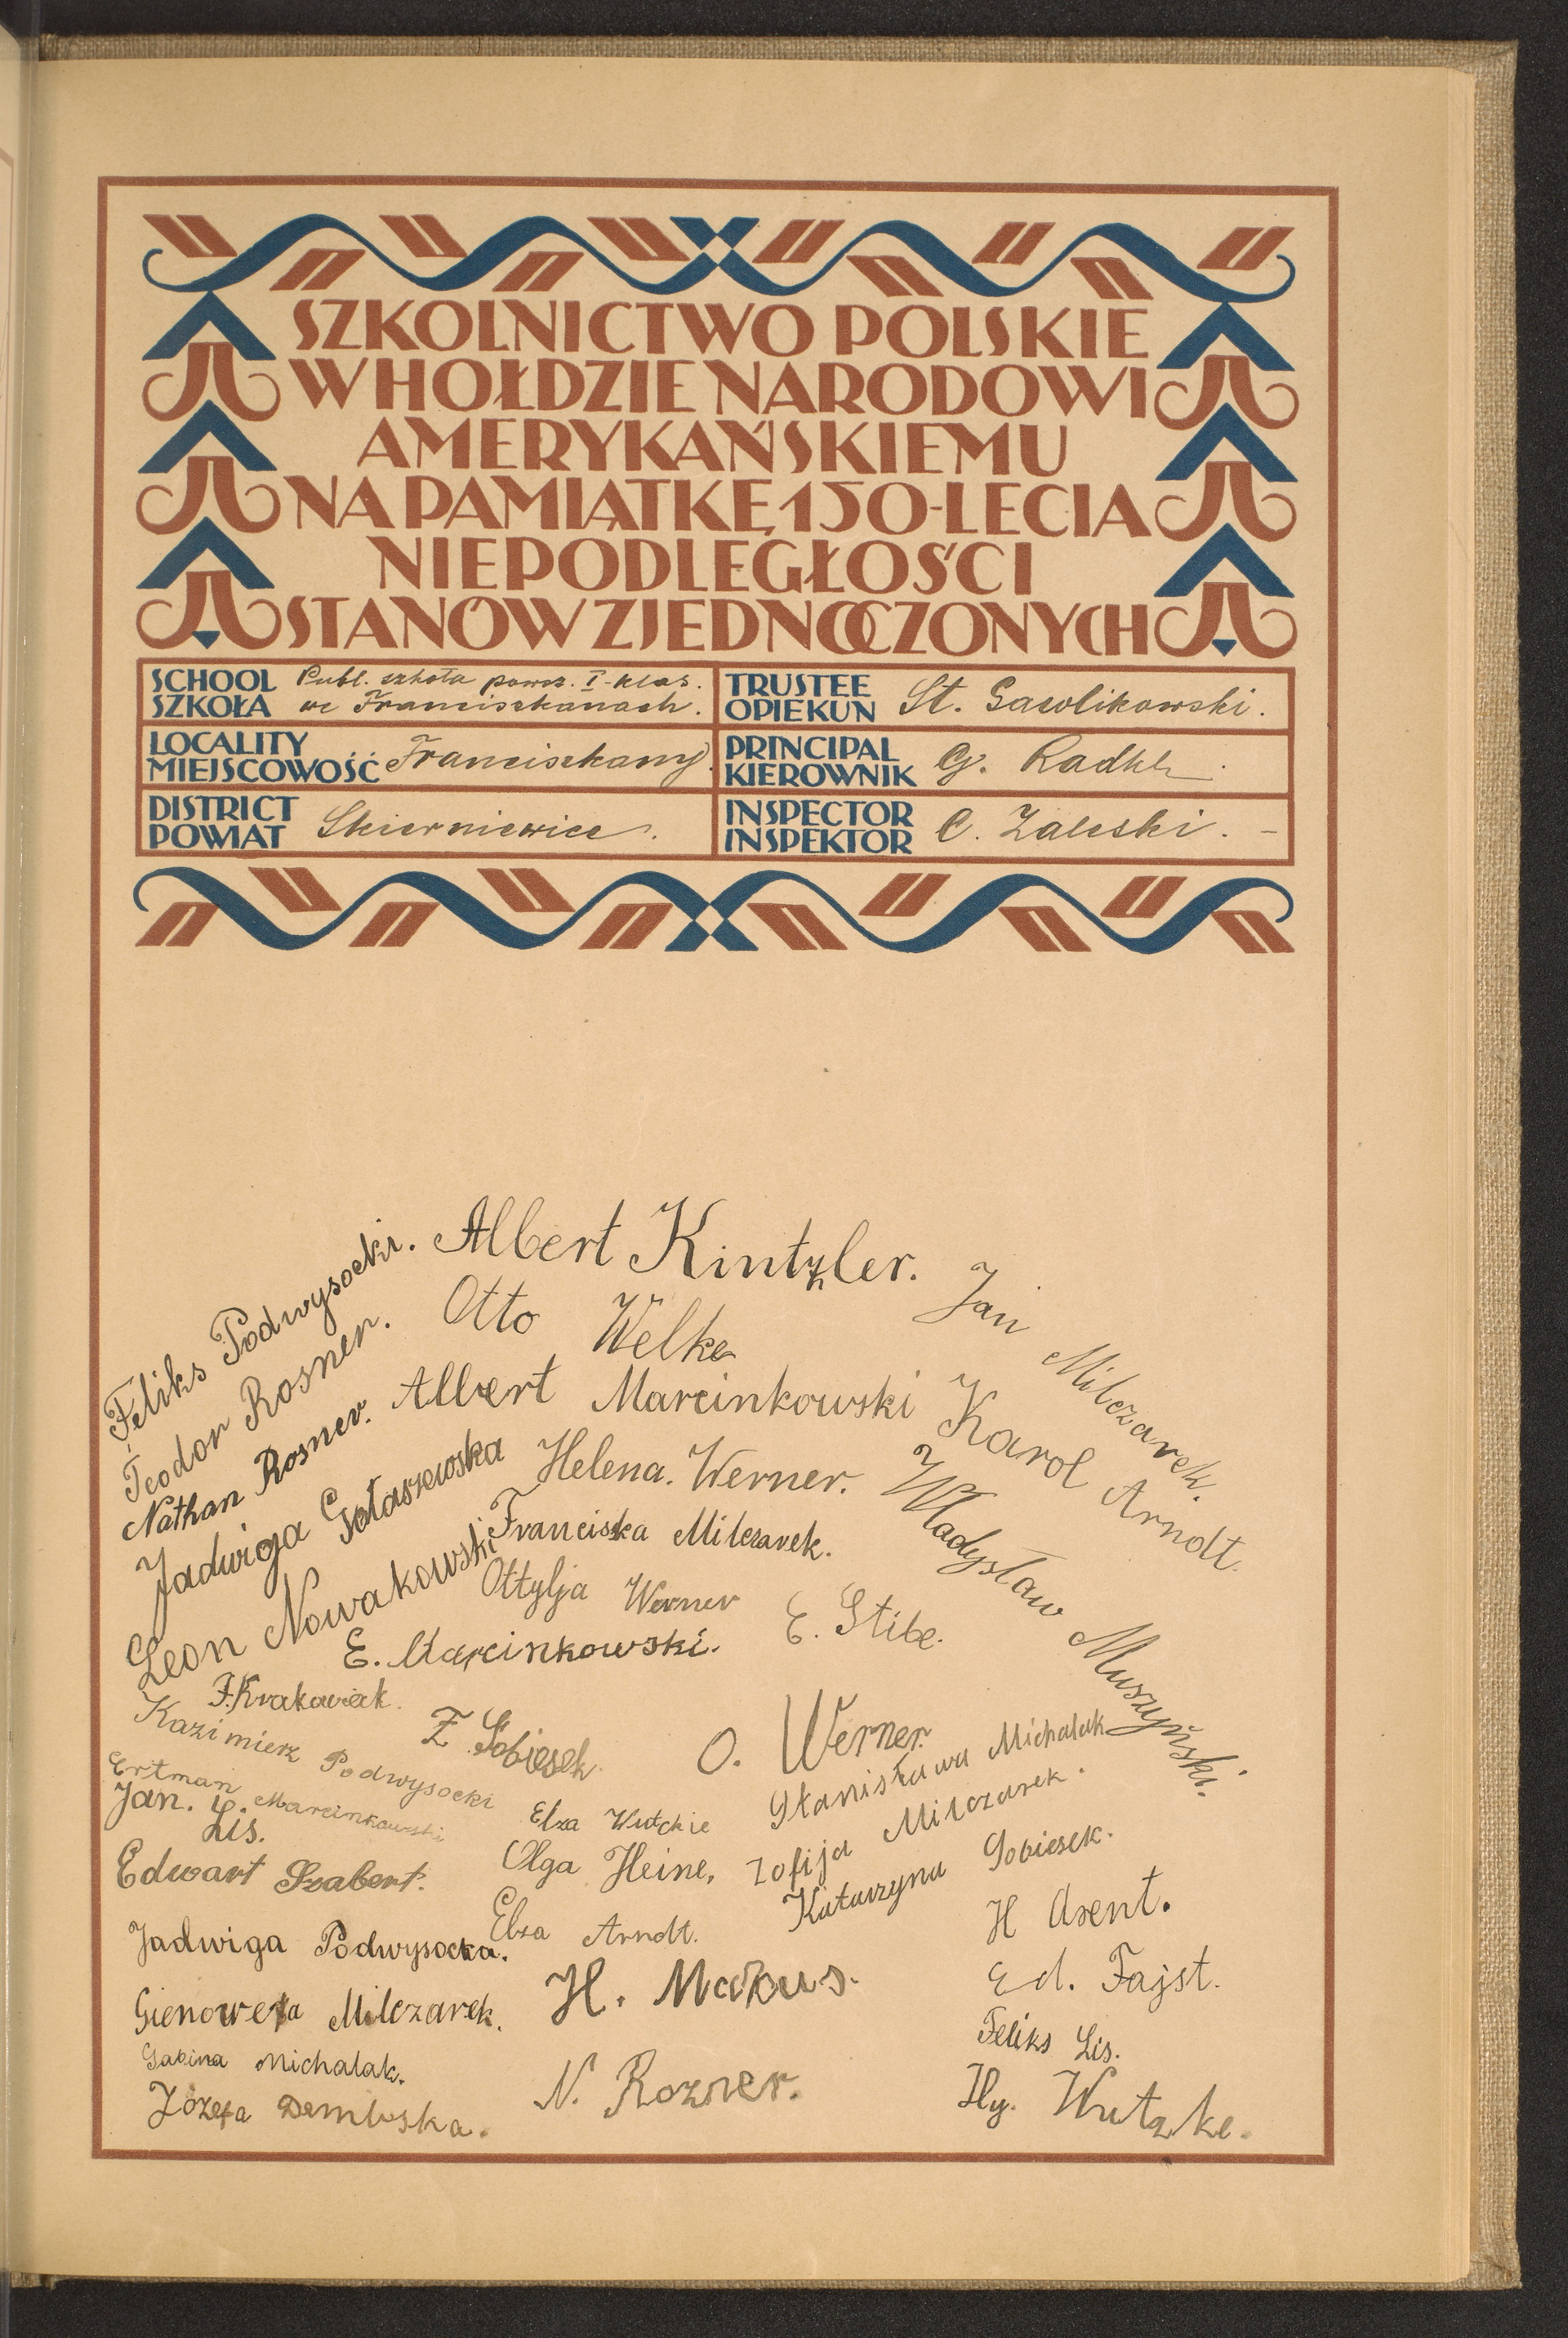 SZKOLNICTWO POLSKIE
W HOŁDZIE NARODOWI
AMERYKAŃSKIEMU
NA PAMIĄTKĘ 150-LECIA
NIEPODLEGŁOŚCI
STANÓW ZJEDNOCZONYCH
SCHOOL
SZKOŁA
Publ. szkoła powsz. I-klas.
we Franciszkanach.
TRUSTEE
OPIEKUN
St. Gawlikowski.
LOCALITY
MIEJSCOWOŚĆ
Franciszkany.
PRINCIPAL
KIEROWNIK
G.
DISTRICT
POWIAT
Skierniewice.
INSPECTOR
INSPEKTOR
C. Zaleski. -
Feliks Podwysocki.
Albert Kintzler.
Jan Milczarek.
Teodor Rosner.
Otto Welke
Nathan Rosner.
Albert Marcinkowski
Karol Arndt.
Jadwiga Gołaszewska
Helena. Werner.
Władysław Muszyński.
Leon Nowakowski
Franciska Milczarek.
Ottylja Werner
E. Stibe.
E. Marcinkowski.
F. Krakowiak.
Z. Sobiesek.
O. Werner.
Kazimierz Podwysocki
Ertman Marcinkowski
Jan. Lis.
Elza Wutckie
Stanisława Michalak
Edwart Szabert.
Olga Heine,
Zofija Milczarek.
Katarzyna Sobiesek.
Jadwiga Podwysocka.
Elza Arndt.
H Arent.
Gienowefa Milczarek.
H. Markus.
Ed. Fajst.
Sabina Michalak.
Feliks Lis.
Józefa Dembska.
N. Rozner.
Hy. Wutzke.